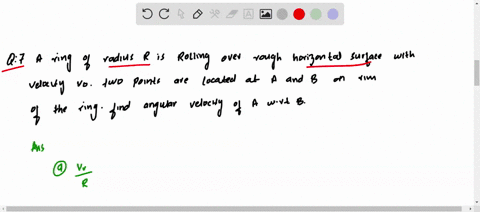 Q:7 A ring of radius R is Rolling over rough horizontal surface with
velocity v0. two points are located at A and B on rim
of the ring. find angular velocity of A w.r.t B.
Ans
(a) V0/R